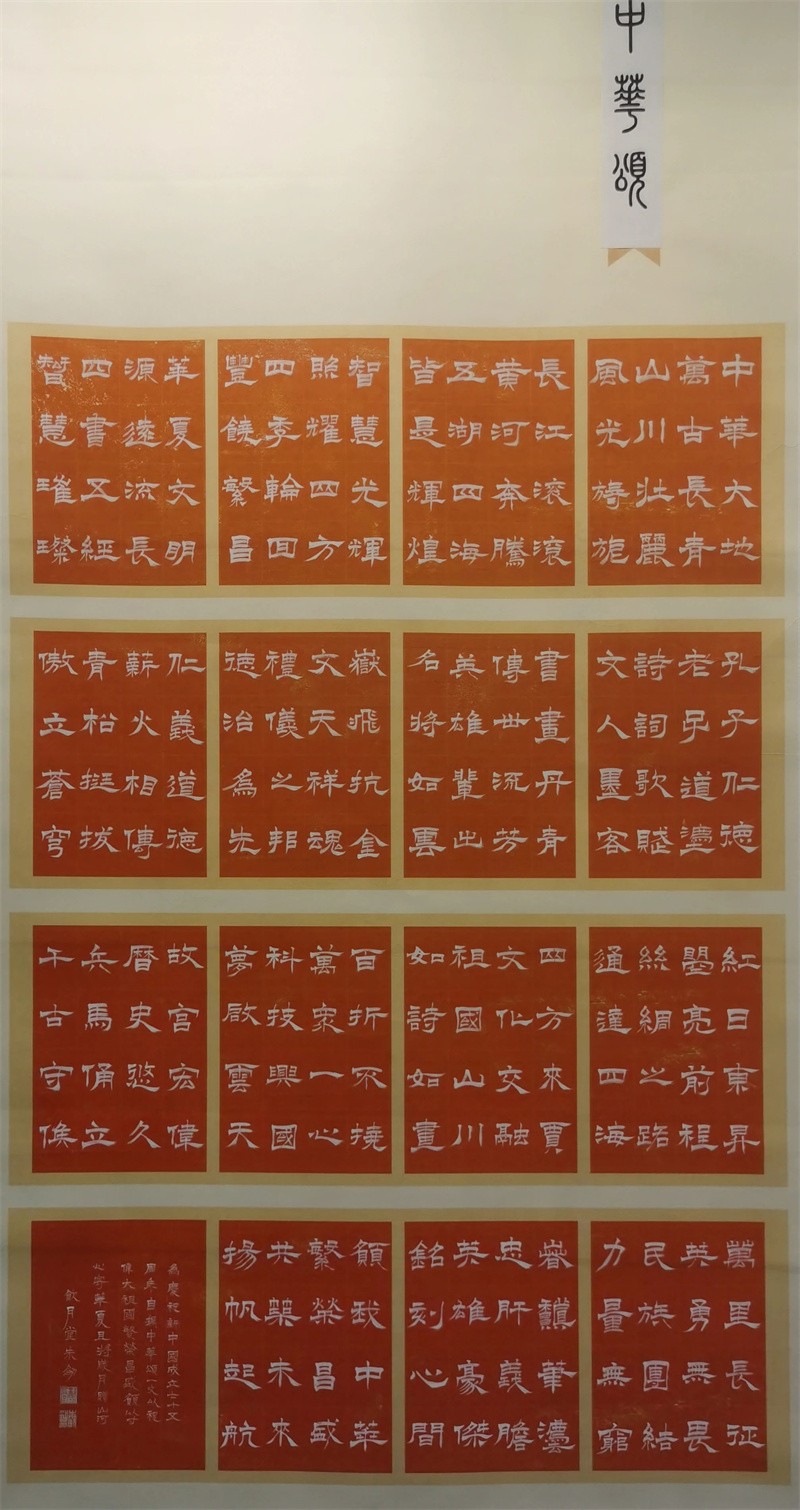 中華頌
中華大地
萬古長青
山川壯麗
風光旖旎
長江滾滾
黃河奔騰
五湖四海
皆是輝煌
智慧光輝
照耀四方
四季輪回
豐饒繁昌
華夏文明
源遠流長
四書五經
智慧璀璨
孔子仁德
老子道灋
詩詞歌賦
文人墨客
書畫丹青
傳世流芳
英雄輩出
名將如雲
嶽飛抗金
文天祥魂
禮儀之邦
德治為先
仁義道德
薪火相傳
青松挺拔
傲立蒼穹
紅日東昇
曌亮前程
絲綢之路
通達四海
四方來賈
文化交融
祖國山川
如詩如畫
百折不撓
萬眾一心
科技興國
夢啟雲天
故宮宏偉
曆史悠久
兵馬俑立
千古守候
萬里長征
英勇無畏
民族團結
力量無窮
華
忠肝義膽
英雄豪傑
銘刻心間
願我中華
繁榮昌盛
共築未來
揚帆起航
為慶祝新中國成立七十五
周年自撰中華頌一文以祝
偉大祖國繁榮昌盛願以寸
心寄華夏且將歲月贈山河
飲月堂朱今